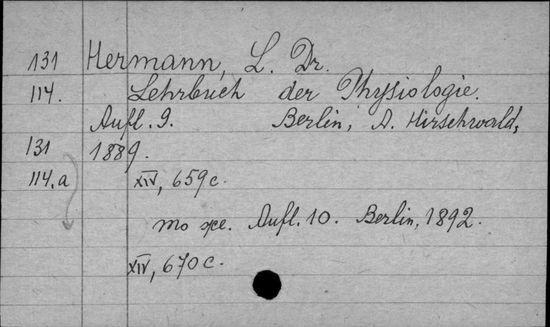 131 Hermann, L. Dr.
114. Lehrbuch der Physiologie.
Aufl. 9. Berlin, A. Hirschwald,
131 1889.
114.a XIV, 659 с.
То же. Aufl. 10. Berlin, 1892.
XIV, 670 с.